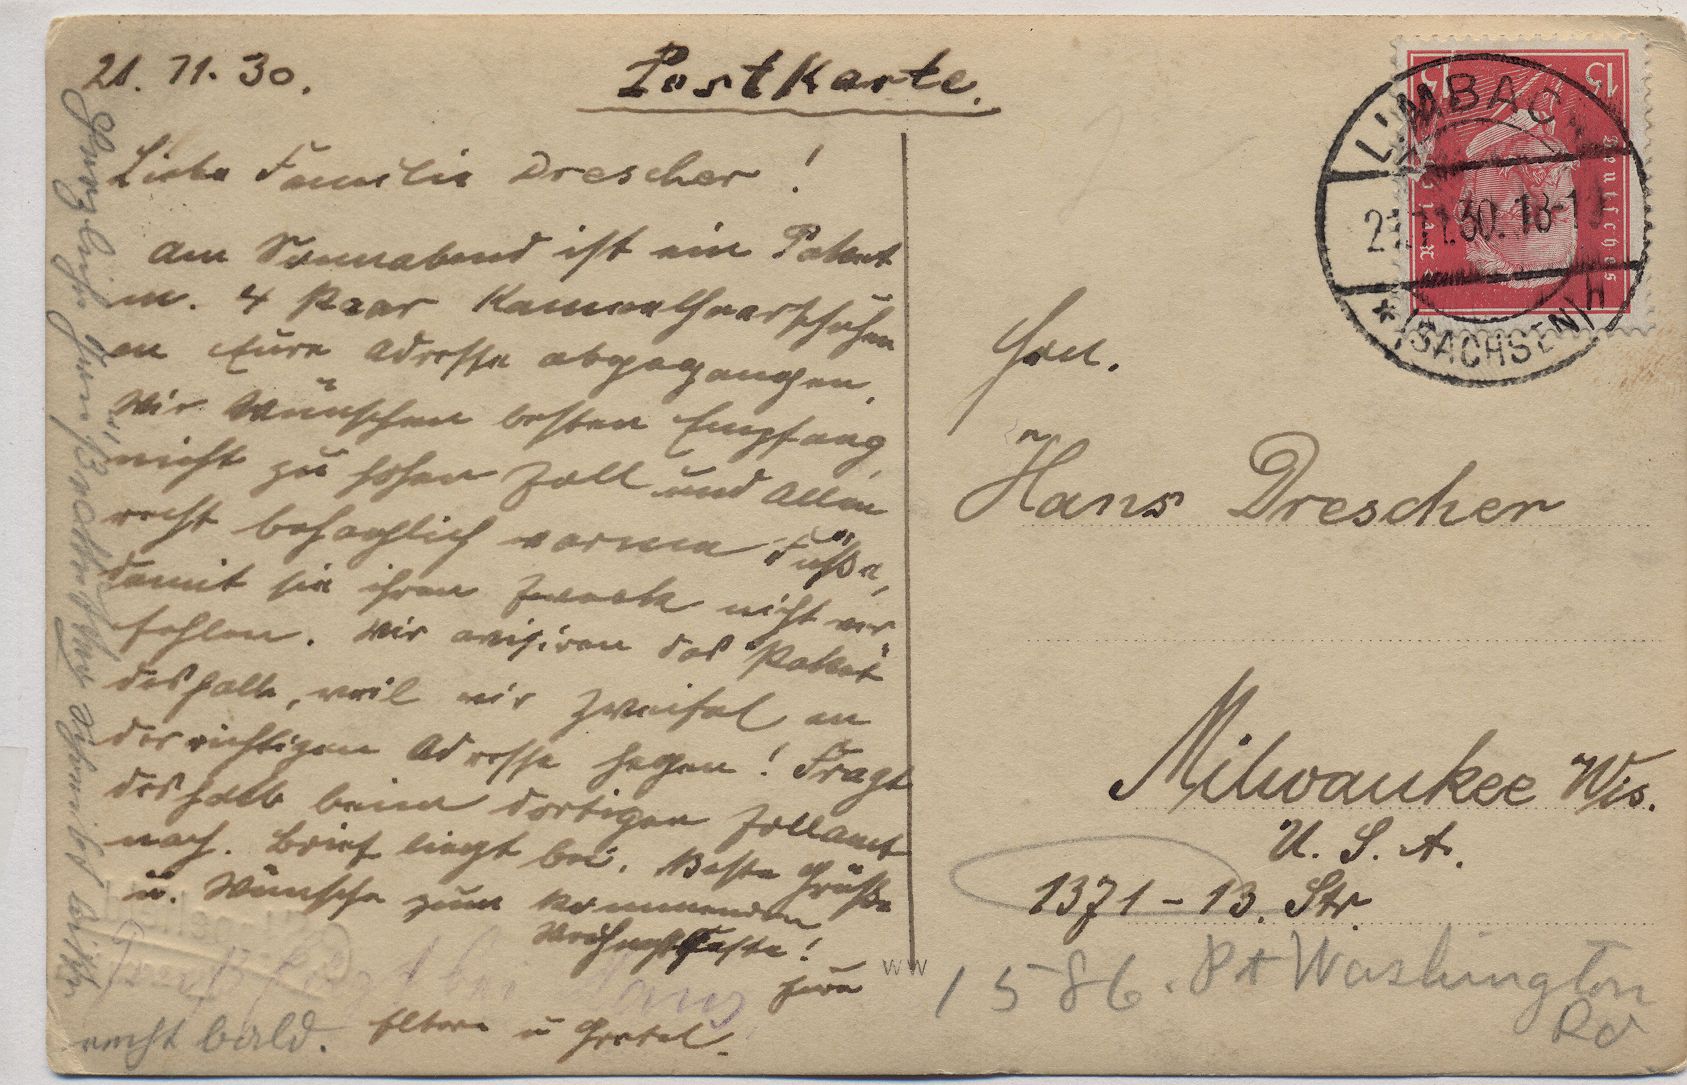 21. 11. 30.
Postkarte.
Liebe Familie Drescher!
Am Sonnabend ist ein Paket
m. 4 Paar Kamelhaarschuhen
an Eure Adresse abgegangen.
Wir wünschen besten Empfang,
nicht zu hohen Zoll und Allen
recht behaglich warme Füße,
damit sie ihren Zweck nicht ver
fehlen. Wir avisiren das Paket
deshalb, weil wir Zweifel an
der richtigen Adresse hegen! Fragt
deshalb beim dortigen Zollamt
nach. Brief liegt bei. Beste Grüße
u. Wünsche zum kommenden
Weihnachtsfeste!
Eure
Eltern u Gretel.
Herzliche
schreibt bitte
recht bald.
Hrn.
Hans Drescher
Milwaukee Wis.
U. S. A.
1371 - 13. Str.
1586. Pt Washington
Rd
WW
15 15
Deutsches
LIMBACH
21.11.30. 18-19
* (SACHSEN) h